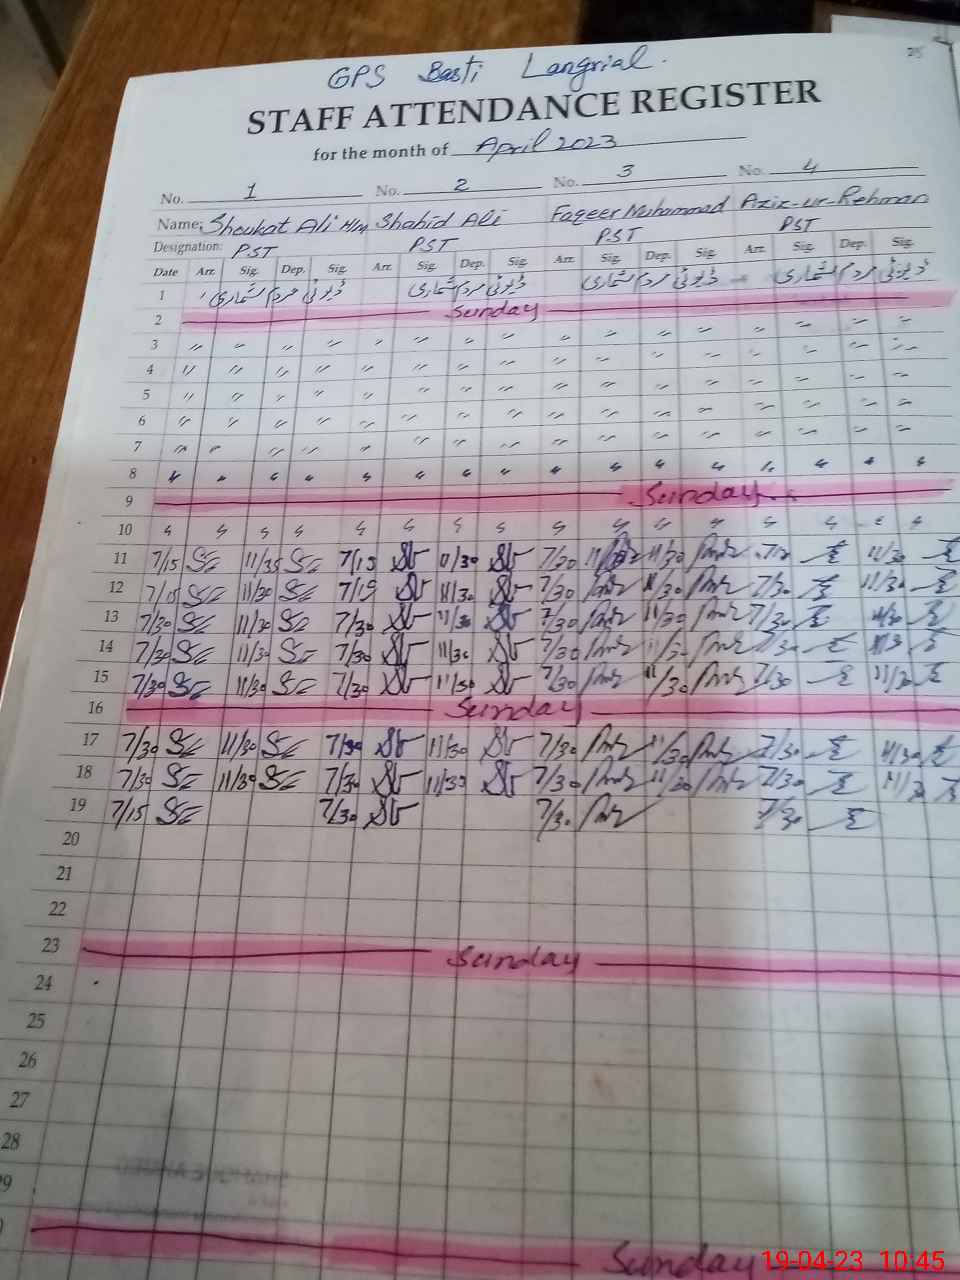 25
GPS Basti Langrial.
STAFF ATTENDANCE REGISTER
for the month of April 2023
No. 1 No. 2 No. 3 No. 4
Name: Shoukat Ali H/M Shahid Ali Faqeer Muhammad Aziz-ur-Rehman
Designation: PST PST PST PST
Date Arr. Sig. Dep. Sig. Arr. Sig. Dep. Sig. Arr. Sig. Dep. Sig. Arr. Sig. Dep. Sig.
1 ڈیوٹی مردم شماری ڈیوٹی مردم شماری ڈیوٹی مردم شماری ڈیوٹی مردم شماری
2 Sunday
3 〃 〃 〃 〃 〃 〃 〃 〃 〃 〃 〃 〃 〃 〃 〃 〃
4 〃 〃 〃 〃 〃 〃 〃 〃 〃 〃 〃 〃 〃 〃 〃
5 〃 〃 〃 〃 〃 〃 〃 〃 〃 〃 〃 〃 〃 〃 〃
6 〃 〃 〃 〃 〃 〃 〃 〃 〃 〃 〃 〃 〃 〃 〃 〃
7 〃 〃 〃 〃 〃 〃 〃 〃 〃 〃 〃 〃 〃 〃 〃 〃
8 〃 〃 〃 〃 〃 〃 〃 〃 〃 〃 〃 〃 〃 〃 〃 〃
9 Sunday
10 〃 〃 〃 〃 〃 〃 〃 〃 〃 〃 〃 〃 〃 〃 〃 〃
11 7/15 11/35 7/15 11/30 7/30 11/30 11/30
12 7/15 11/30 7/15 11/30 7/30 11/30 7/30 11/30
13 7/30 11/30 7/30 11/30 7/30 11/30 7/30 11/30
14 7/30 11/30 7/30 11/30 7/30 11/30 7/30
15 7/30 11/30 7/30 11/30 7/30 11/30 7/30 11/30
16 Sunday
17 7/30 11/30 7/30 11/30 7/30 11/30 7/30 11/30
18 7/30 11/30 7/30 11/30 7/30 11/30 7/30 11/30
19 7/15 7/30 7/30 7/30
20
21
22
23 Sunday
24
25
26
27
28
9
Sunday
19-04-23 10:45